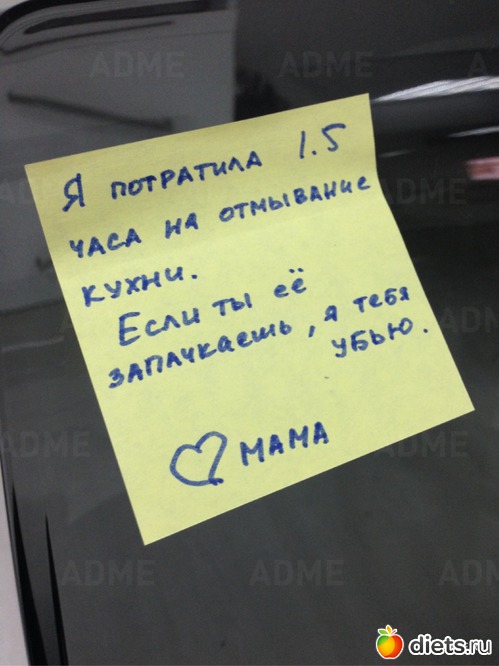 Я ПОТРАТИЛА 1.5
ЧАСА НА ОТМЫВАНИЕ
КУХНИ.
ЕСЛИ ТЫ ЕЁ
ЗАПАЧКАЕШЬ, Я ТЕБЯ
УБЬЮ.
♡ МАМА
ADME
ADME
ADME
ADME
ADME
ADME
ADME
ADME
ADME
ADME
diets.ru